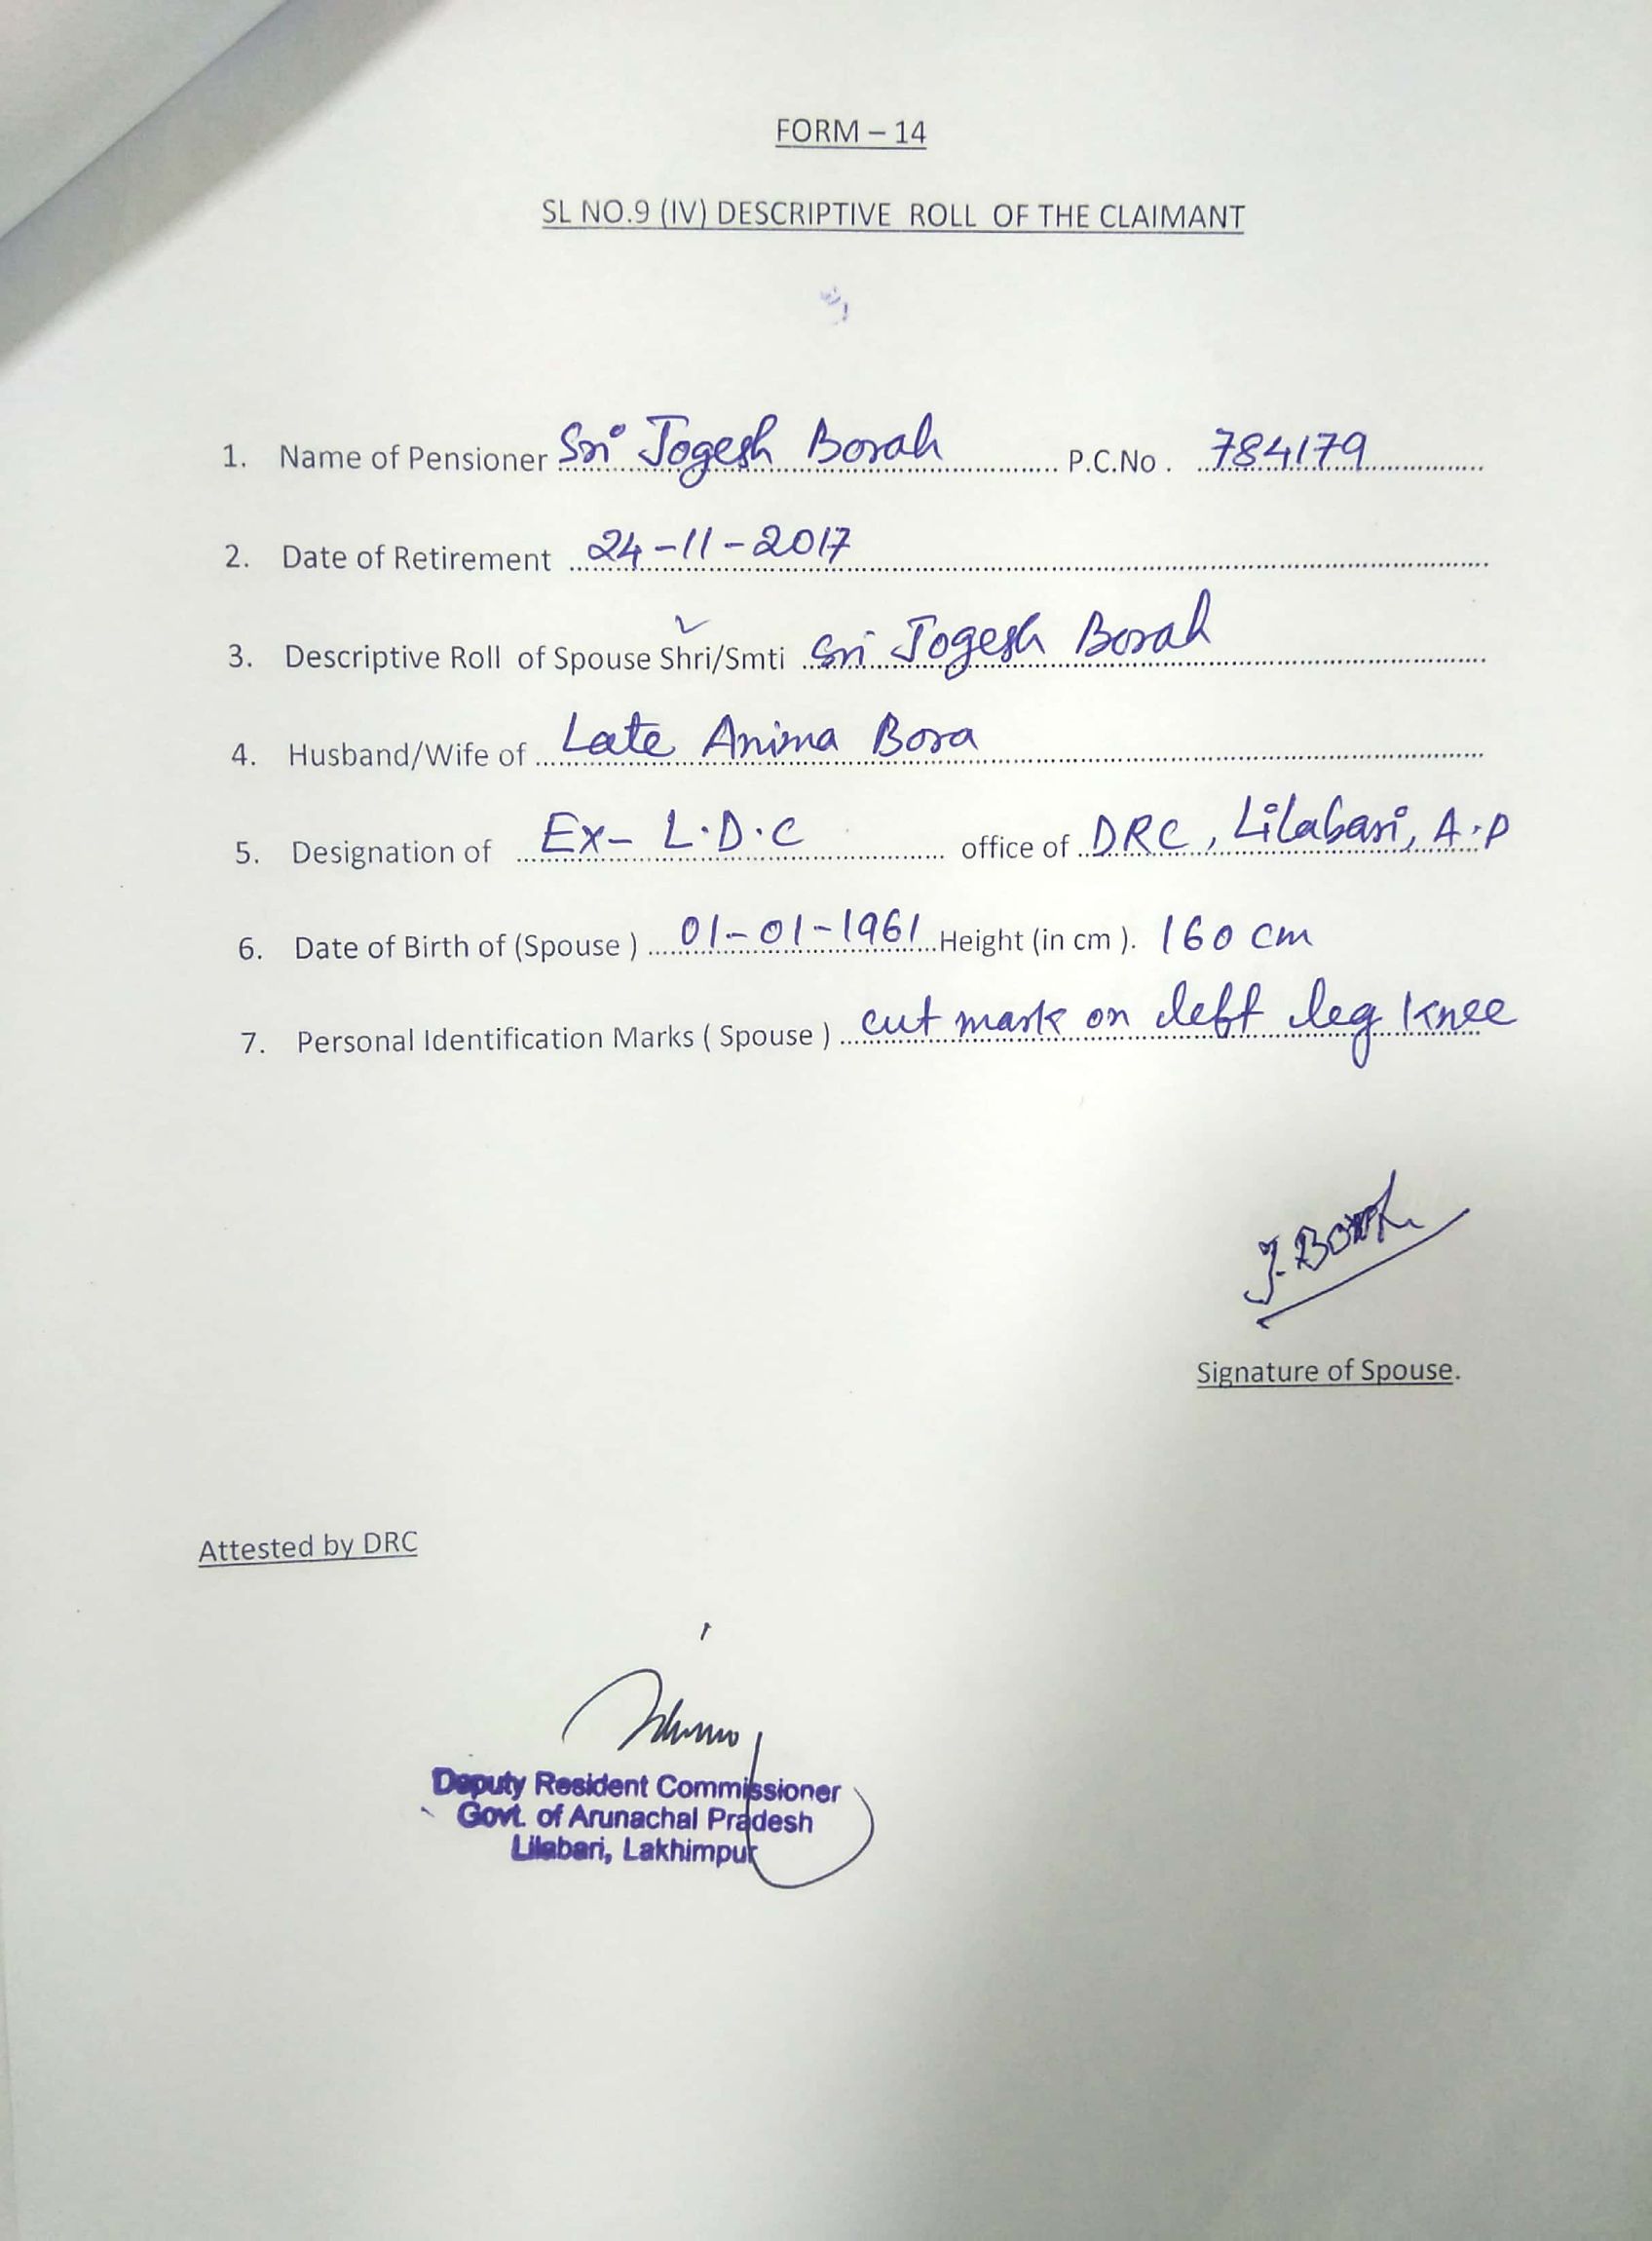 FORM – 14
SL NO.9 (IV) DESCRIPTIVE ROLL OF THE CLAIMANT
1. Name of Pensioner Sri Jogesh Borah P.C.No. 784179
2. Date of Retirement 24-11-2017
3. Descriptive Roll of Spouse Shri/Smti Sri Jogesh Borah
4. Husband/Wife of Late Anima Bora
5. Designation of Ex- L.D.C office of DRC, Lilabari, A.P
6. Date of Birth of (Spouse ) 01-01-1961 Height (in cm ). 160 cm
7. Personal Identification Marks ( Spouse ) cut mark on left leg knee
J. Borah
Signature of Spouse.
Attested by DRC
Deputy Resident Commissioner
Govt. of Arunachal Pradesh
Lilabari, Lakhimpur